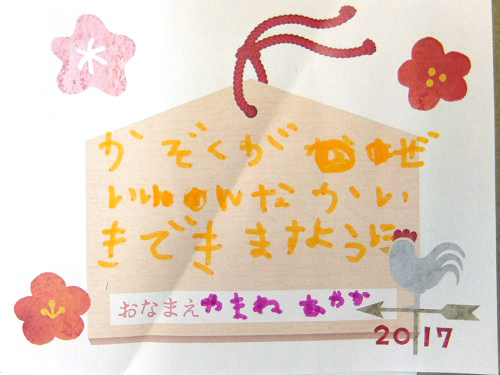 かぞくが かぜ
いいんなかい
きできますように
おなまえ やまね あやか
2017